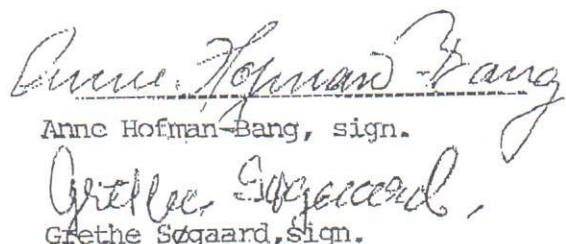 Anne Hofman-Bang
Anne Hofman-Bang, sign.
Grethe Søgaard,
Grethe Søgaard,sign.